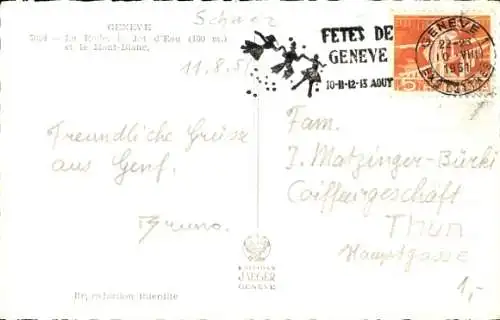 GENEVE
La Rade, le Jet d'Eau (100 m.)
et le Mont-Blanc.
Schweiz
11.8.51
FETES DE
GENEVE
10-11-12-13 AOUT
GENEVE
1951
Freundliche Grüsse
aus Genf.
Bruno.
Fam.
J. Matzinger-Bürki
Coiffurgeschäft
Thun
Hauptgasse
1,-
EDITIONS
JAEGER
GENEVE
Reproduction interdite